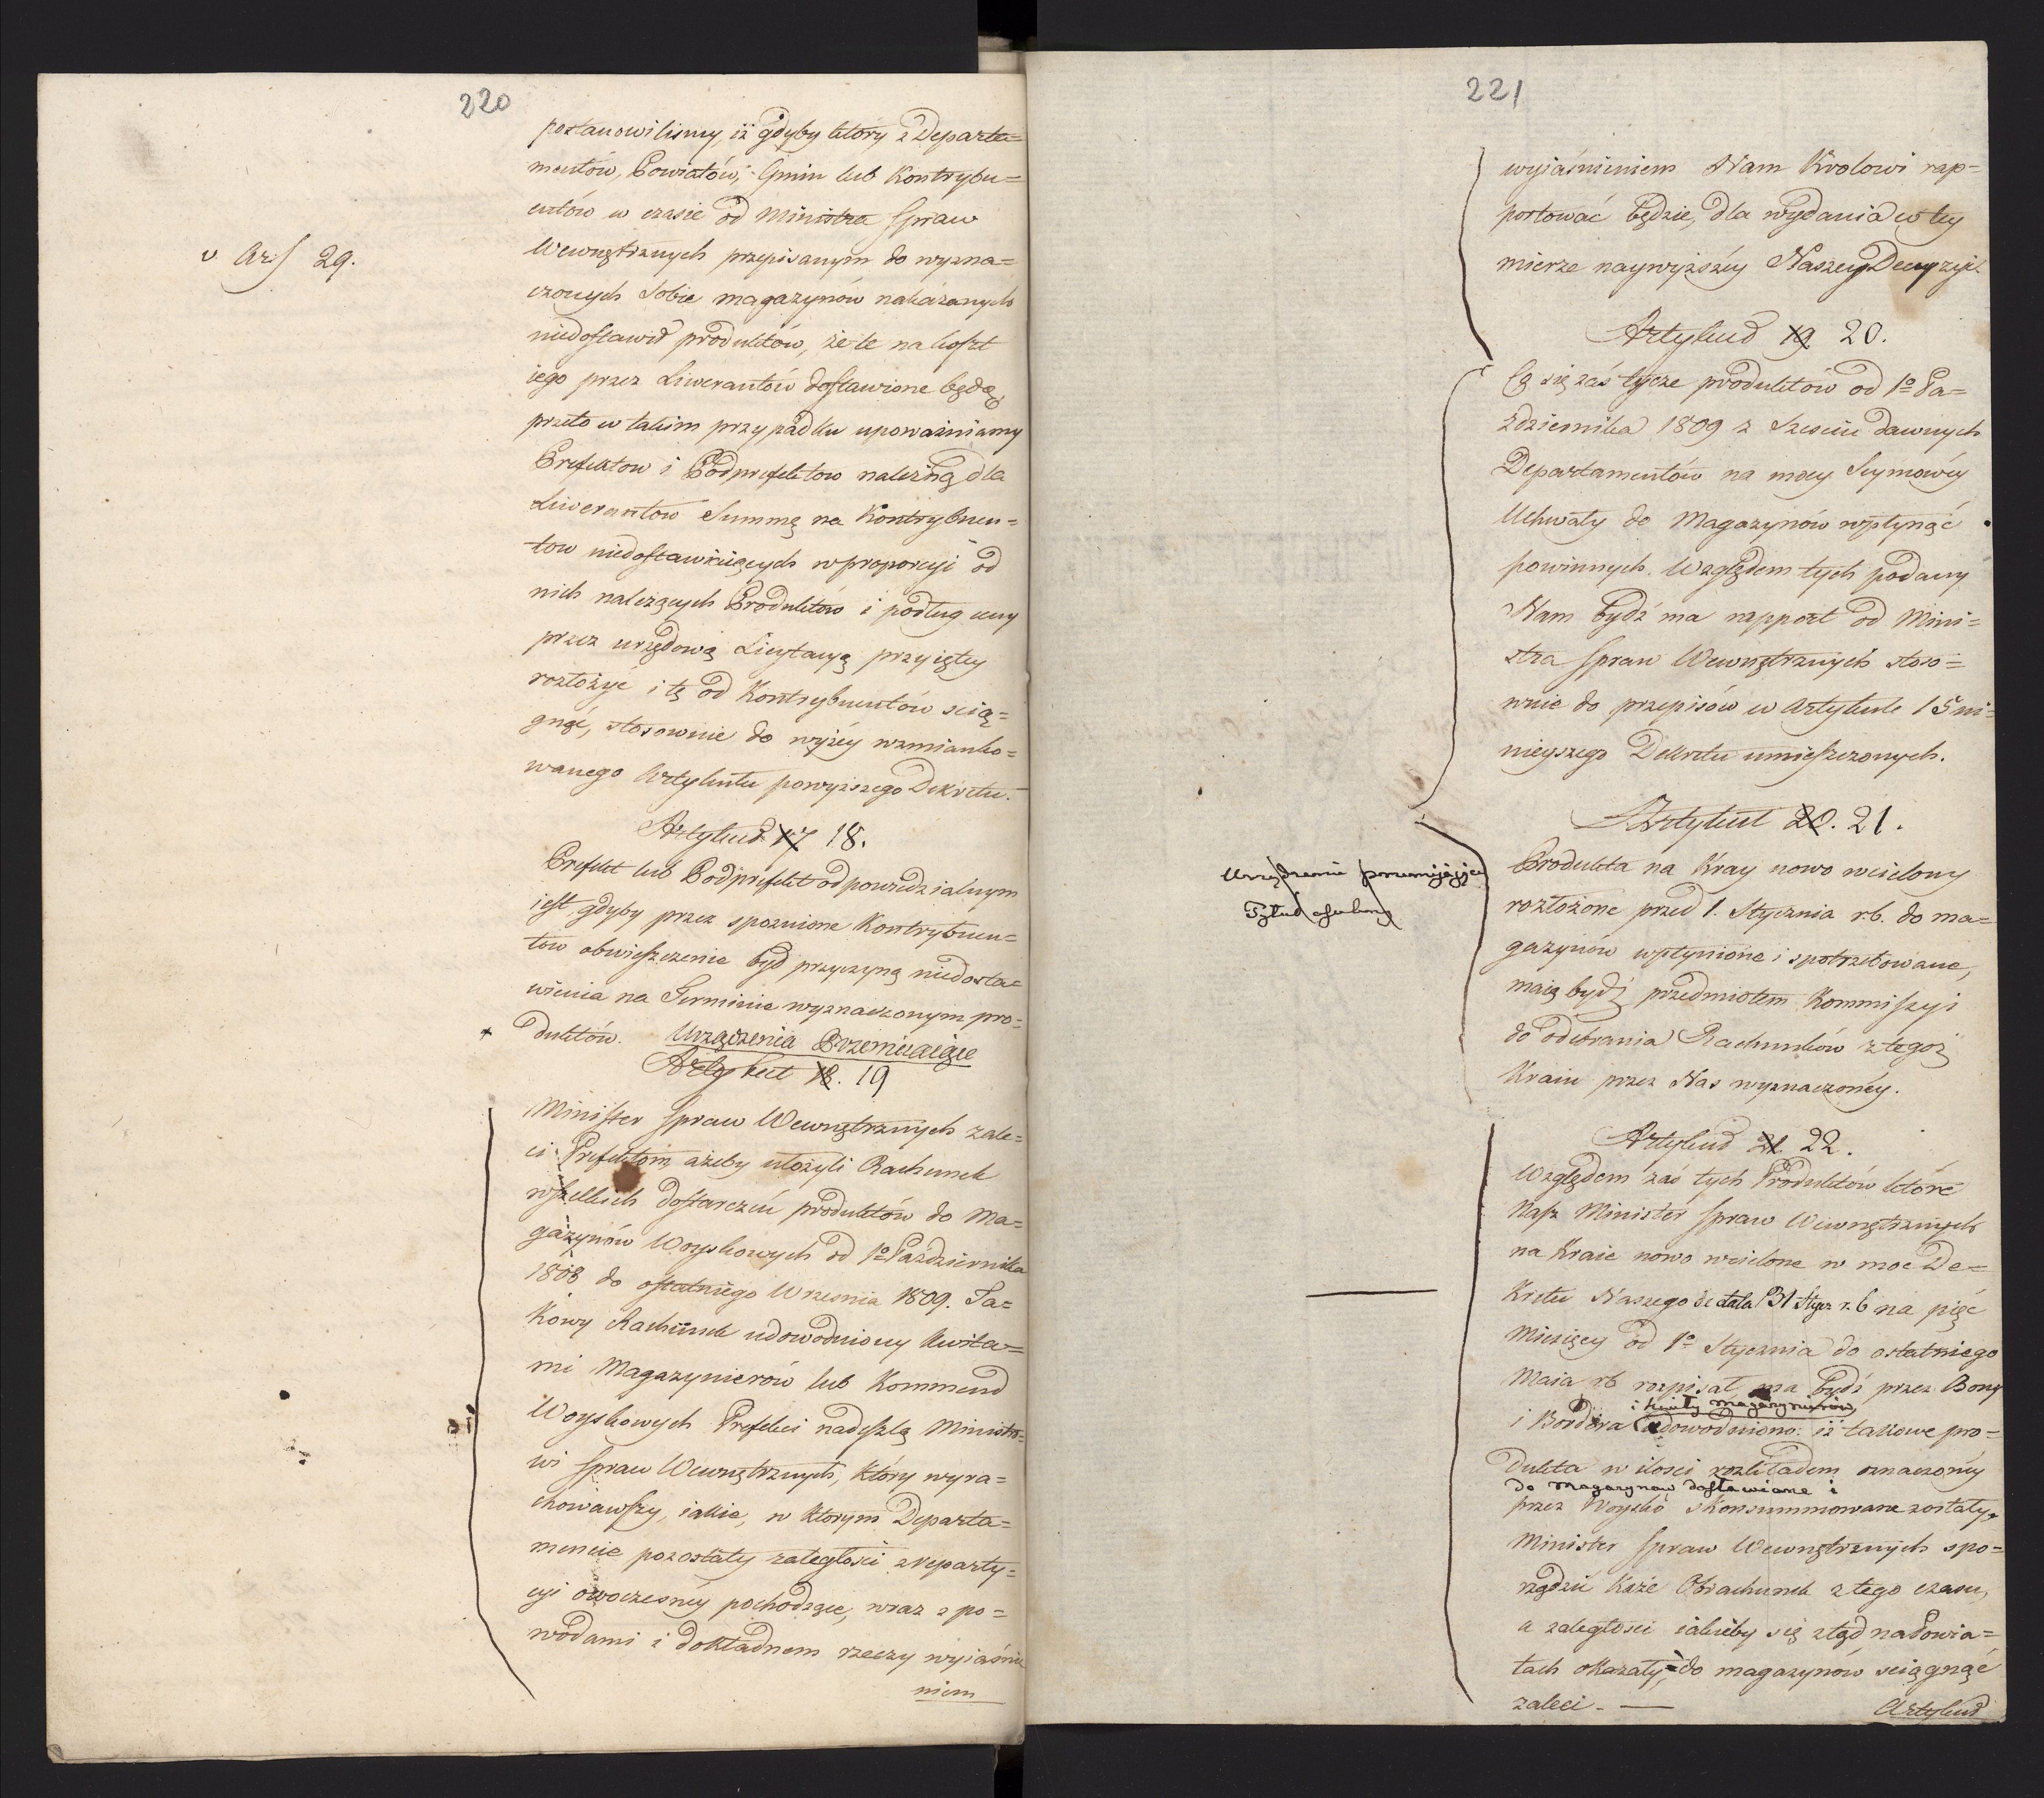 220
postanowilismy, iż gdyby który z Departa=
mentów, Powiatów, Gmin lub Kontrybu=
entów w czasie od Ministra Spraw
Wewnętrznych przepisanym do wyzna=
v Art 29.
czonych sobie magazynów nakazanych
niedostawił produktów, że te na koszt
iego przez Liwerantów dostawione będą,
przeto w takim przypadku upoważniamy
Prefektow i Podprefektow należną dla
Liwerantow Summę na Kontrybuen=
tow niedostawuiących w proporcyi od
nich należących Produktów i podług ceny
przez urzędową Licytacyą przyiętey
rozłożyc i tę od Kontrybuentów scią=
gnąć, stosownie do wyżey wzmianko=
wanego Artykułu powyższego Dekretu.
Artykuł 17 18.
Prefekt lub Podprefekt odpowiedzialnym
iest, gdyby przez spoznione Kontrybuen=
tow obwieszczenie był przyczyną niedosta=
wienia na Terminie wyznaczonym pro=
duktów. Urządzenia Przemiiaiące
Artykuł 18. 19
Minister Spraw Wewnętrznych zale=
ci Prefektom, ażeby ułożyli Rachunek
wszelkich dostarczeń produktów do Ma=
gazynów Woyskowych od 1o Października
1808 do ostatniego Wrzesnia 1809. Ta=
kowy Rachunek udowodniony Kwita=
mi Magazynierów lub Kommend
Woyskowych Prefekci nadeszlą Ministro=
wi Spraw Wewnętrznych, który wyra=
chowawszy, iakie, w którym Departa=
mencie pozostały zaległości z reparty=
cyi owoczesnéy pochodzące, wraz z po=
wodami i dokładnem rzeczy wyiaśnie
niem
221
wyiaśnieniem Nam Krolowi rap=
portować będzie, dla wydania w tey
mierze naywyższéy Naszey Decyzyi.
Artykuł 19 20.
Co się zaś tycze produktów od 1o Pa=
ździernika 1809 z Szesciu dawnych
Departamentów na mocy Seymowéy
Uchwały do Magazynów wpłynąć
powinnych. Względem tych podany
Nam bydź ma rapport od Mini=
stra Spraw Wewnętrznych stoso=
wnie do przepisów w Artykule 15 ni=
nieyszego Dekretu umieszczonych.
Artykuł 20. 21.
Urządzenie przemijające
Tytuł osobny
Produkta na Kray nowo wcielony
rozłożone przed 1. Stycznia r.b. do ma=
gazynów wpłynione i spotrzebowane,
maią bydź przedmiotem Kommiszyi
do odebrania Rachunków z tegoż
Kraiu przez Nas wyznaczonéy.
Artykuł 21. 22.
Względem zaś tych Produktów które
Nasz Minister Spraw Wewnętrznych
na Kraie nowo wcielone w moc De=
kretu Naszego de data 31 Stycz r. b na pięć
Miesięcy od 1o Stycznia do ostatniego
Maia rb rozpisał, ma bydź przez Bony
i kwity magazynierów
i Bordera udowodniono: iż takowe pro=
dukta w ilosci rozkładem oznaczonéy
do magazynow dostawiane i
przez Woysko skonsummowane zostały.
Minister Spraw Wewnętrznych spo=
rządzić każe Obrachunek z tego czasu,
a zaległosci iakieby się ztąd na Powia=
tach okazały, do magazynów sciągnąć
zaleci. —
Artykuł